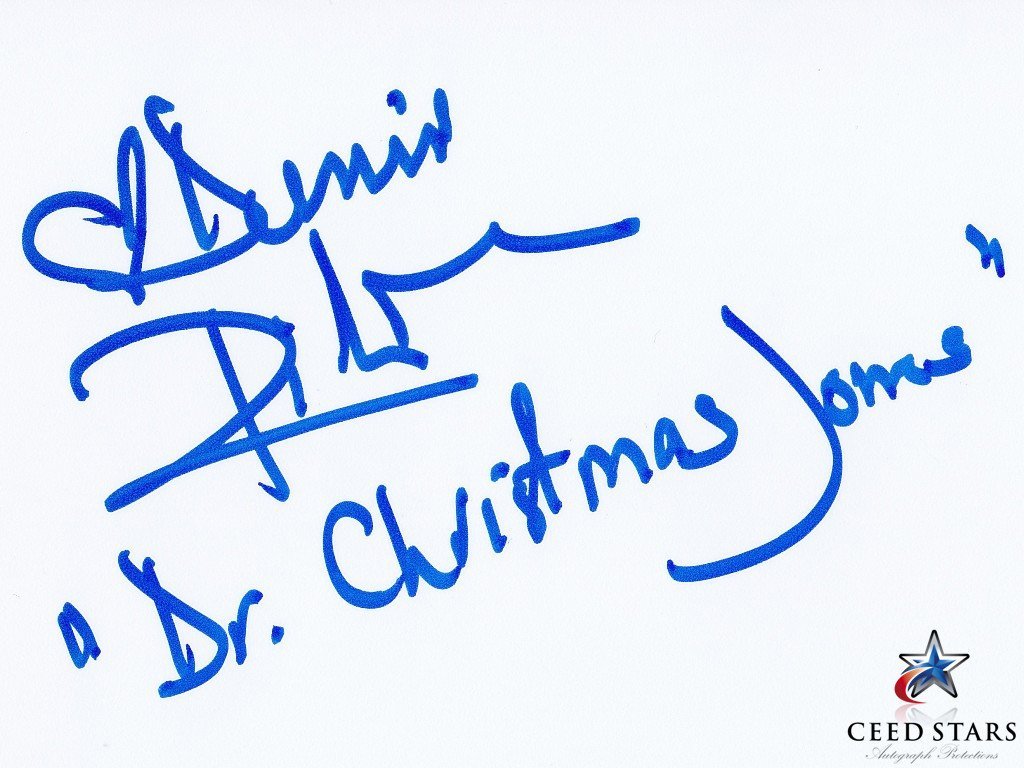 Denise
"Dr. Christmas Jones"
CEED STARS
Autograph Protections